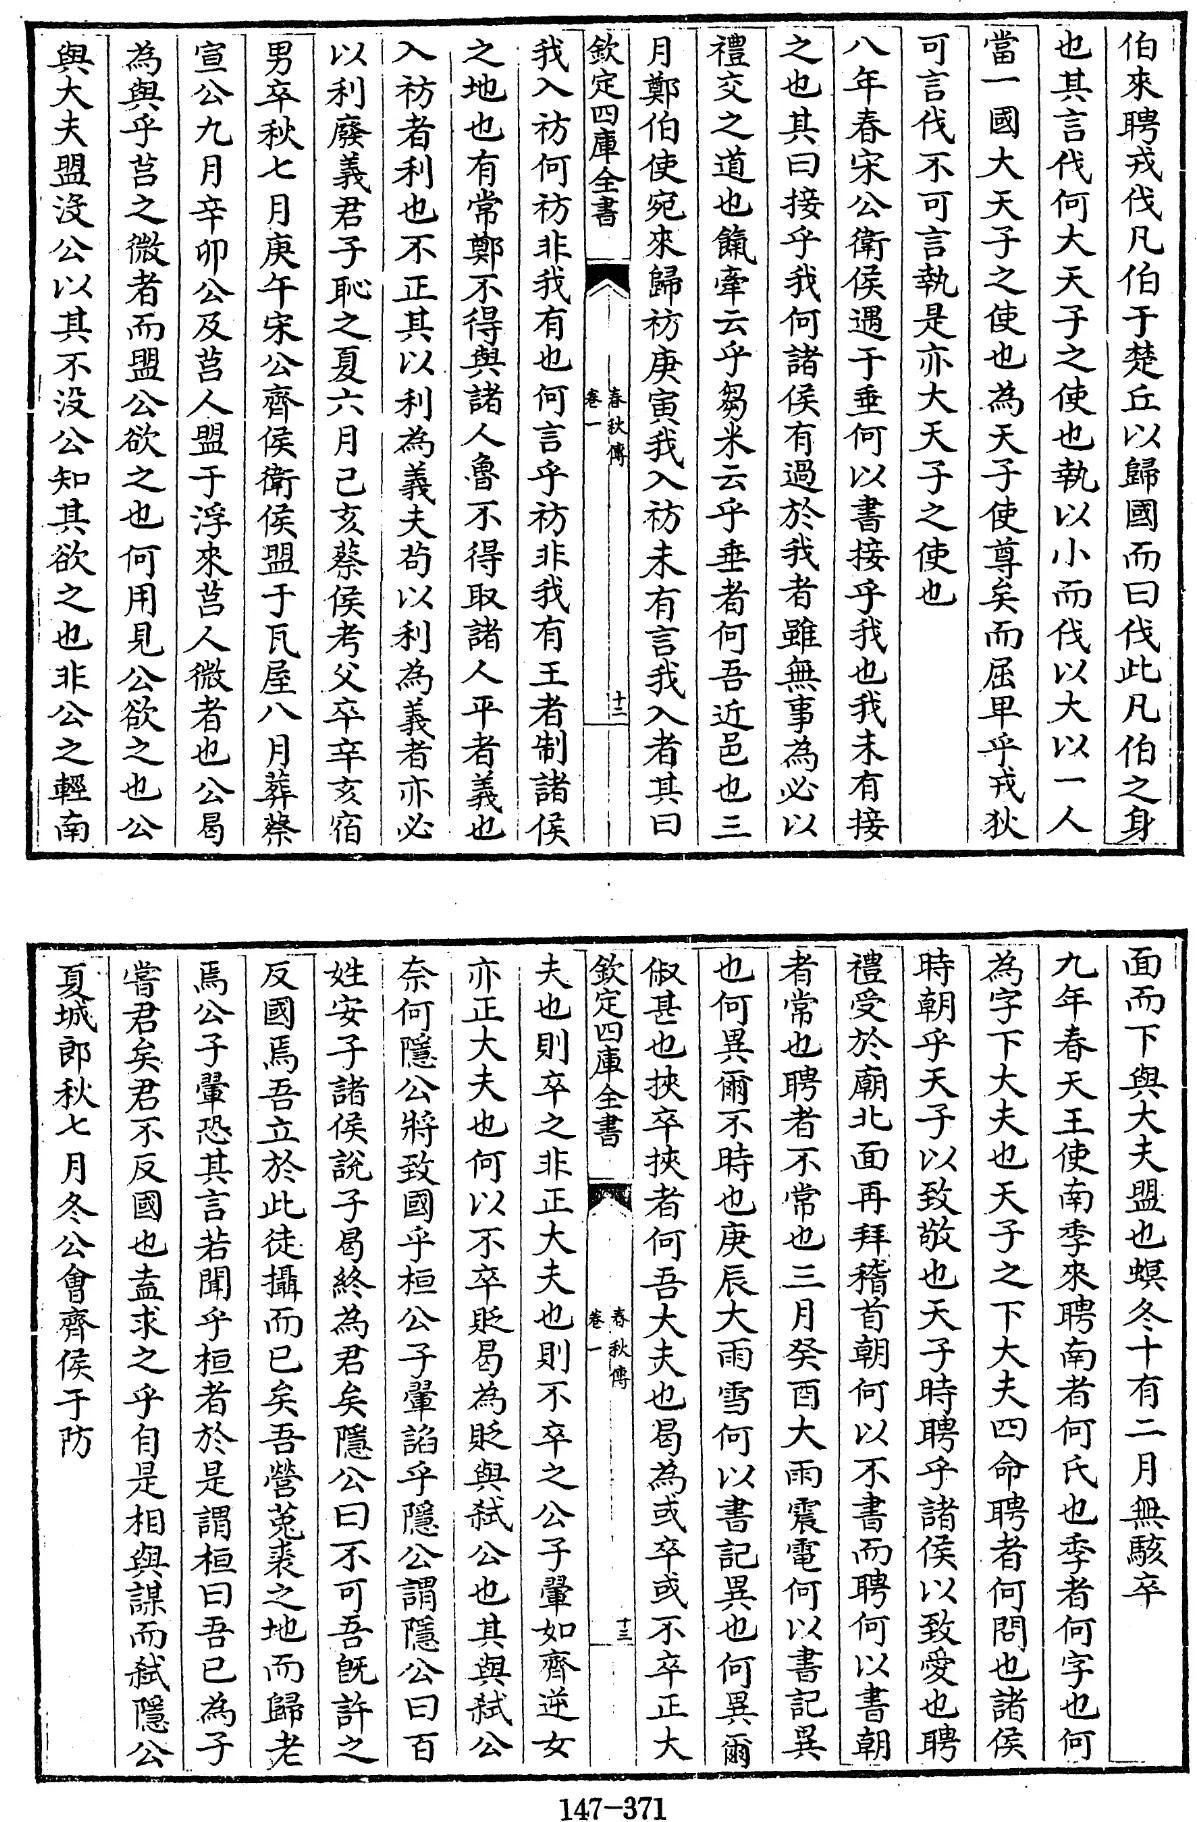 伯來聘戎伐凡伯于楚丘以歸國而曰伐此凡伯之身
也其言伐何大天子之使也執以小而伐以大以一人
當一國大天子之使也為天子使尊矣而屈卑乎戎狄
可言伐不可言執是亦大天子之使也
八年春宋公衛侯遇于垂何以書接乎我也我未有接
之也其曰接乎我何諸侯有過於我者雖無事為必以
禮交之道也餼牽云乎芻米云乎垂者何吾近邑也三
月鄭伯使宛來歸祊庚寅我入祊未有言我入者其曰
欽定四庫全書
春秋傳
卷一
十二
我入祊何祊非我有也何言乎祊非我有王者制諸侯
之地也有常鄭不得與諸人魯不得取諸人平者義也
入祊者利也不正其以利為義夫苟以利為義者亦必
以利廢義君子恥之夏六月己亥蔡侯考父卒辛亥宿
男卒秋七月庚午宋公齊侯衛侯盟于瓦屋八月葬蔡
宣公九月辛卯公及莒人盟于浮來莒人微者也公曷
為與乎莒之微者而盟公欲之也何用見公欲之也公
與大夫盟沒公以其不沒公知其欲之也非公之輕南
面而下與大夫盟也螟冬十有二月無駭卒
九年春天王使南季來聘南者何氏也季者何字也何
為字下大夫也天子之下大夫四命聘者何問也諸侯
時朝乎天子以致敬也天子時聘乎諸侯以致愛也聘
禮受於廟北面再拜稽首朝何以不書而聘何以書朝
者常也聘者不常也三月癸酉大雨震電何以書記異
也何異爾不時也庚辰大雨雪何以書記異也何異爾
俶甚也挾卒挾者何吾大夫也曷為或卒或不卒正大
欽定四庫全書
春秋傳
卷一
十三
夫也則卒之非正大夫也則不卒之公子翬如齊逆女
亦正大夫也何以不卒貶曷為貶與弒公也其與弒公
奈何隱公將致國乎桓公子翬諂乎隱公謂隱公曰百
姓安子諸侯說子曷終為君矣隱公曰不可吾既許之
反國焉吾立於此徒攝而已矣吾營菟裘之地而歸老
焉公子翬恐其言若聞乎桓者於是謂桓曰吾已為子
嘗君矣君不反國也盍求之乎自是相與謀而弒隱公
夏城郎秋七月冬公會齊侯于防
147-371